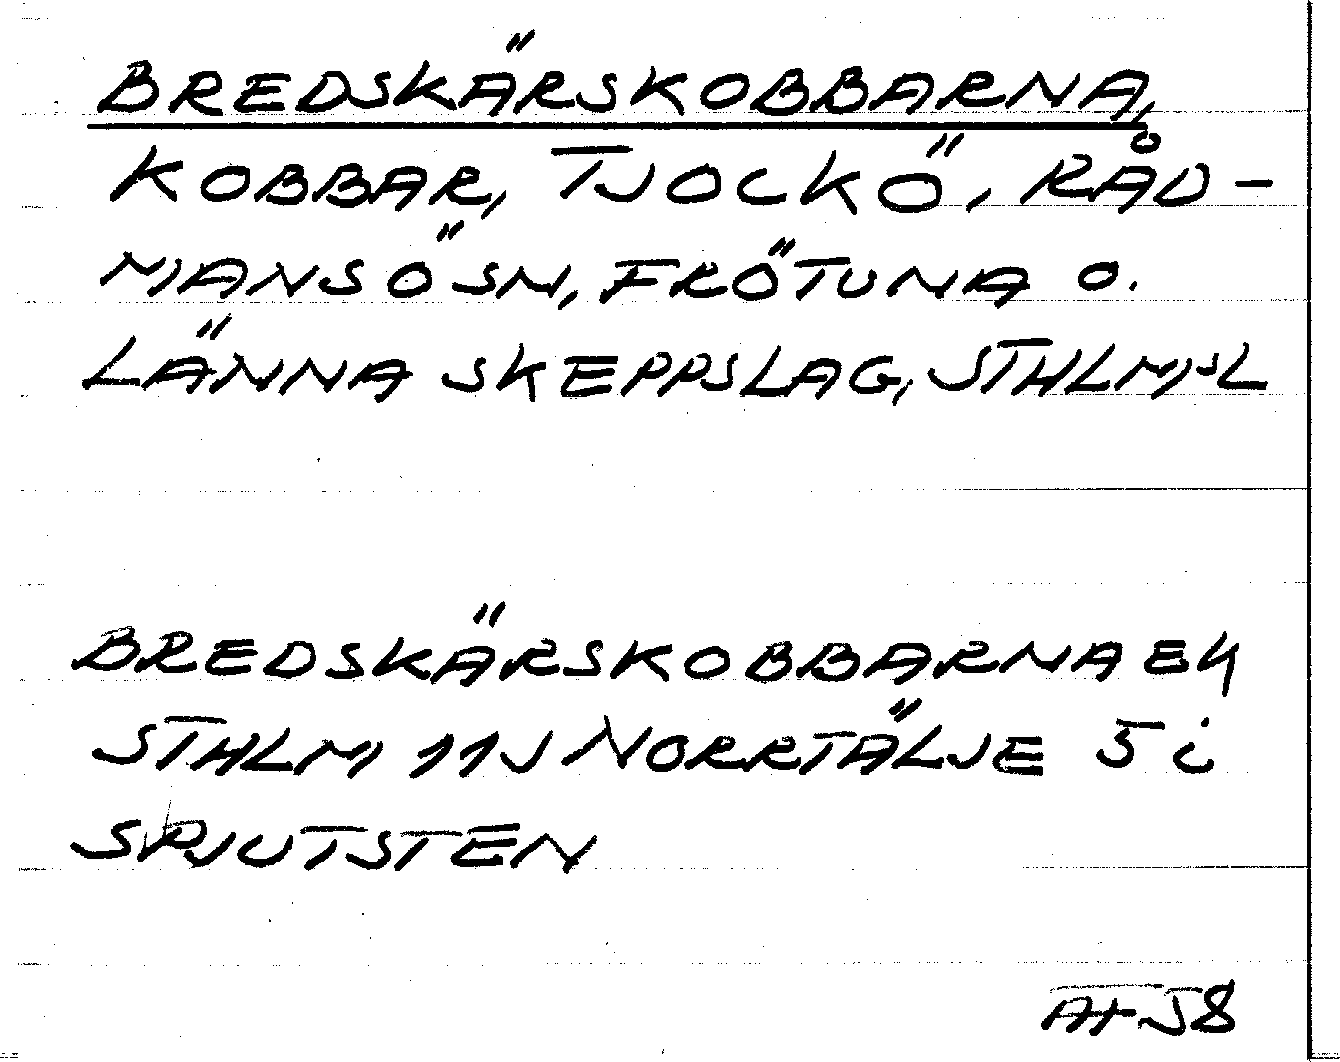 BREDSKÄRSKOBBARNA,
KOBBAR, TJOCKÖ, RÅD-
MANSÖ SN, FRÖTUNA O.
LÄNNA SKEPPSLAG, STHLMS L
BREDSKÄRSKOBBARNA EK
STHLM 11J NORRTÄLJE 5 i
SPJUTSTEN